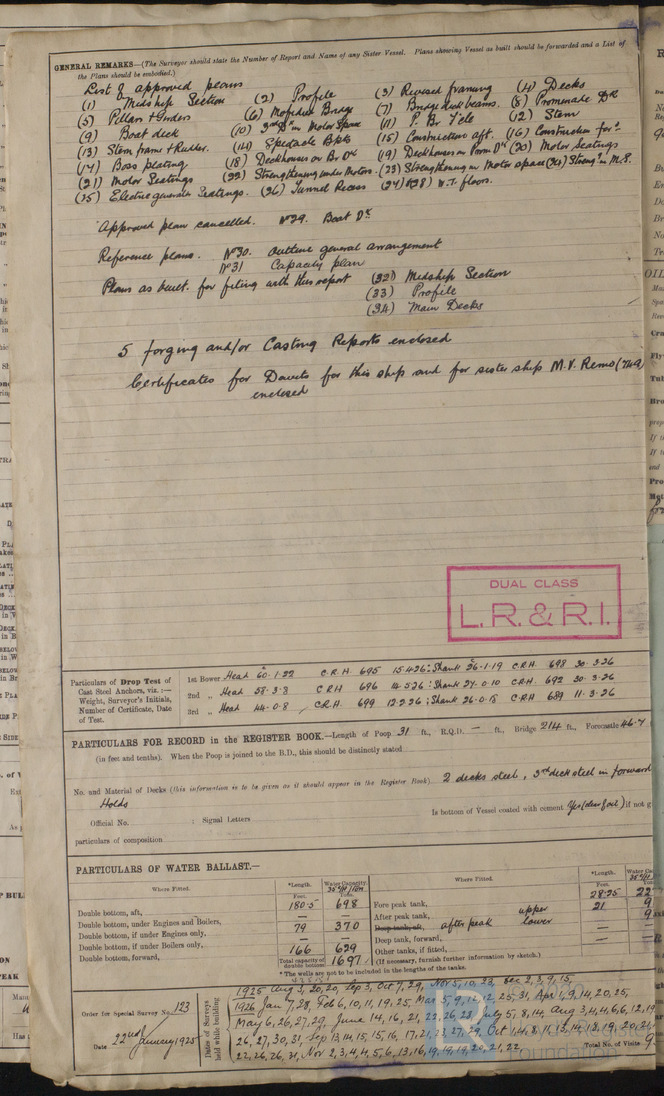 GENERAL REMARKS—(The Surveyor should state the Number of Report and Name of any Sister Vessel. Plans showing Vessel as built should be forwarded and a List of
the Plans should be embodied.)
List of approved plans
(1) Midship Section (2) Profile (3) Revised framing (4) Decks
(5) Pillars & Girders (6) Modified Bridge (7) Bridge deck beams. (8) Promenade Dk
(9) Boat deck (10) 3rd Dk in Motor Space (11) P. Br F'cle (12) Stem
(13) Stern frame & Rudder. (14) Spectacle Bkts (15) Construction aft. (16) Construction for'd
(17) Boss plating (18) Deckhouses on Br Dk (19) Deckhouses on Prom Dk (20) Motor Seatings
(21) Motor Seatings (22) Strengthening under Motors. (23) Strengthening in Motor space (24) Streng'g in M.S.
(25) Electric generator Seatings. (26) Tunnel Recess (27) & (28) W.T. floors.
Approved plan cancelled. No 29. Boat Dk
Reference plans. No 30. Outline general arrangement
No 31 Capacity plan
Plans as built. for filing with this report (32) Midship Section
(33) Profile
(34) Main Decks
5 forging and/or Casting Reports enclosed
Certificates for Davits for this ship and for sister ship M.V. Remo
enclosed
DUAL CLASS
L.R. & R.I.
Particulars of Drop Test of
Cast Steel Anchors, viz.:—
Weight, Surveyor's Initials,
Number of Certificate, Date
of Test.
1st Bower Head 60.1.22 C.R.H. 695 15.4.26 : Shank 26.1.19 C.R.H. 698 30.3.26
2nd „ Head 58.3.8 C.R.H 696 14.5.26 : Shank 27.0.10 C.R.H. 692 30.3.26
3rd „ Head 44.0.8 C.R.H. 699 12.2.26 : Shank 26.0.18 C.R.H. 689 11.3.26
PARTICULARS FOR RECORD in the REGISTER BOOK.—Length of Poop 31 ft., R.Q.D. — ft., Bridge 214 ft., Forecastle 46.7
(in feet and tenths). When the Poop is joined to the B.D., this should be distinctly stated
No. and Material of Decks (this information is to be given as it should appear in the Register Book) 2 decks steel, 3rd deck steel in forward
Holds
Official No. ; Signal Letters Is bottom of Vessel coated with cement Yes if not g
particulars of composition
PARTICULARS OF WATER BALLAST.—
Where Fitted. *Length. Water Capacity. Where Fitted. *Length. Water Ca
Feet. Feet.
Double bottom, aft, 180.5 698 Fore peak tank, 28.25 22
Double bottom, under Engines and Boilers, — — After peak tank, upper 21 9
Double bottom, if under Engines only, 79 370 Deep tank, aft, after peak lower — 9
Double bottom, if under Boilers only, — — Deep tank, forward, — —
Double bottom, forward, 166 629 Other tanks, if fitted,
Total capacity of double bottom 1697 (If necessary, furnish further information by sketch.)
* The wells are not to be included in the lengths of the tanks.
Order for Special Survey No. 123
Date 22nd January 1925
Dates of Surveys
held while building
1925 Aug 3, 20, 20, Sep 3, Oct 7, 29, Nov 5, 10, 23, Dec 2, 3, 9, 15,
1926 Jan 7, 28, Feb 6, 10, 11, 19, 25, Mar 5, 9, 12, 12, 25, 31, Apr 1, 9, 14, 20, 25,
May 6, 26, 27, 29, June 14, 16, 21, 22, 26, 28, July 5, 8, 14, Aug 3, 4, 4, 6, 12, 19
26, 27, 30, 31, Sep 13, 14, 15, 15, 16, 17, 21, 23, 27, 29, Oct 1, 4, 8, 11, 13, 14, 18, 19, 20, 21,
22, 26, 26, 31, Nov 2, 3, 4, 4, 5, 6, 13, 16, 19, 19, 19, 20, 21, 22
Total No. of Visits 9
Foundation